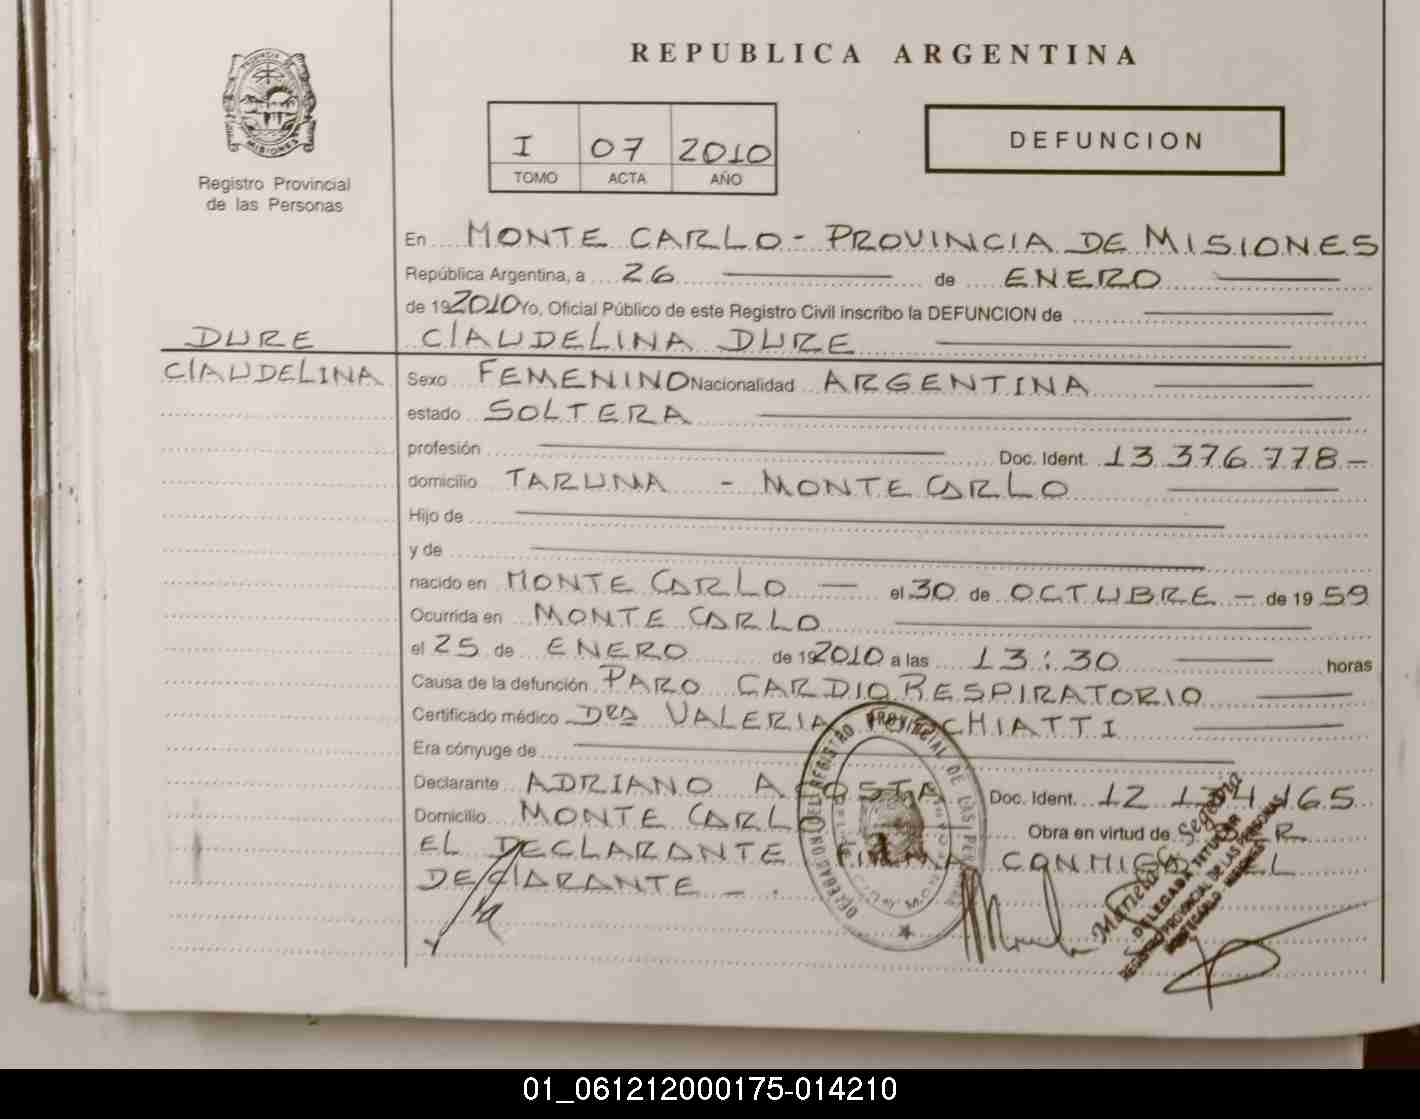 REPUBLICA ARGENTINA
PROVINCIA DE
MISIONES
Registro Provincial
de las Personas
I 07 2010
TOMO ACTA AÑO
DEFUNCION
En MONTE CARLO - PROVINCIA DE MISIONES
República Argentina, a 26 de ENERO
de 192010 Yo, Oficial Público de este Registro Civil inscribo la DEFUNCION de
DURE
CLAUDELINA
CLAUDELINA DURE
Sexo FEMENINO Nacionalidad ARGENTINA
estado SOLTERA
profesión Doc. Ident. 13.376.778-
domicilio TARUMA - MONTE CARLO
Hijo de
y de
nacido en MONTE CARLO — el 30 de OCTUBRE - de 19 59
Ocurrida en MONTE CARLO
el 25 de ENERO de 192010 a las 13:30 horas
Causa de la defunción PARO CARDIO RESPIRATORIO
Certificado médico DRA VALERIA
Era cónyuge de
Declarante ADRIANO ACOSTA Doc. Ident. 12.134.165
Domicilio MONTE CARLO Obra en virtud de
EL DECLARANTE FIRMA CONMIGO EL
DECLARANTE - .
DELEGACION DEL REGISTRO PROVINCIAL DE LAS
DELEGADA TITULAR
REGISTRO PROVINCIAL DE LAS PERSONAS
MONTECARLO MISIONES
01_061212000175-014210